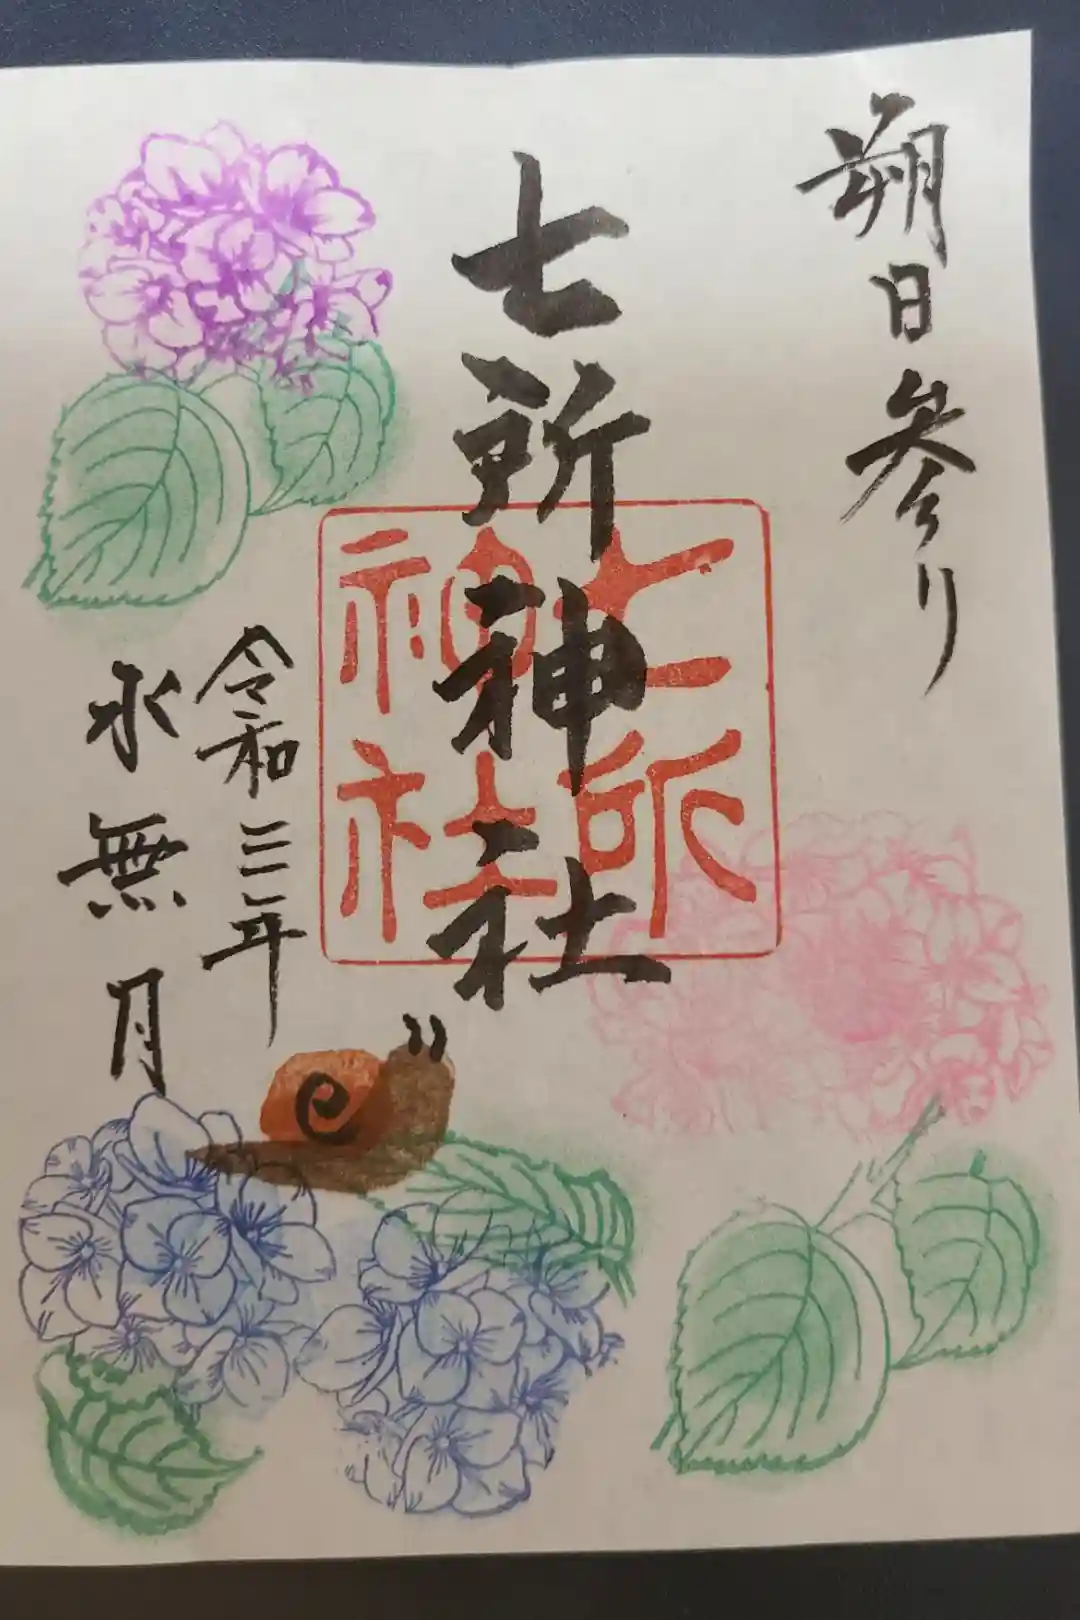 朔日参り
七所神社
七所
神社
令和三年
水無月